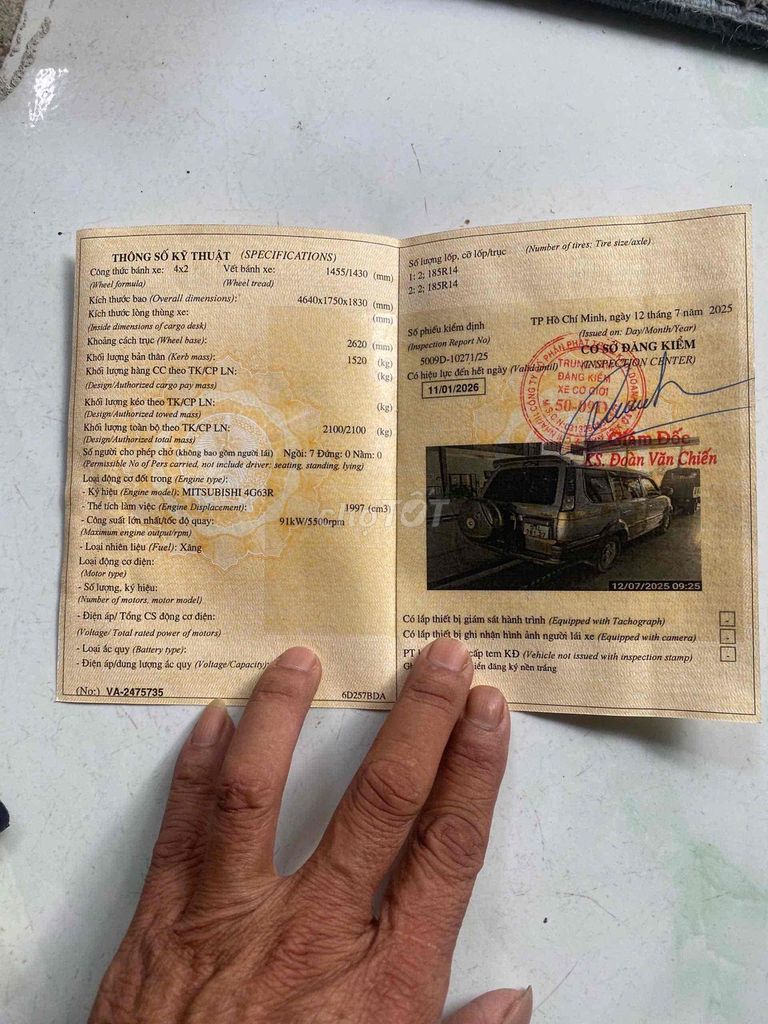 THÔNG SỐ KỸ THUẬT (SPECIFICATIONS)
Công thức bánh xe: 4x2 Vết bánh xe: 1455/1430 (mm)
(Wheel formula) (Wheel tread)
Kích thước bao (Overall dimensions): 4640x1750x1830 (mm)
Kích thước lòng thùng xe: (mm)
(Inside dimensions of cargo desk)
Khoảng cách trục (Wheel base): 2620 (mm)
Khối lượng bản thân (Kerb mass): 1520 (kg)
Khối lượng hàng CC theo TK/CP LN: (kg)
(Design/Authorized cargo pay mass)
Khối lượng kéo theo TK/CP LN: (kg)
(Design/Authorized towed mass)
Khối lượng toàn bộ theo TK/CP LN: 2100/2100 (kg)
(Design/Authorized total mass)
Số người cho phép chở (không bao gồm người lái) Ngồi: 7 Đứng: 0 Nằm: 0
(Permissible No of Pers carried, not include driver: seating, standing, lying)
Loại động cơ đốt trong (Engine type):
- Ký hiệu (Engine model): MITSUBISHI 4G63R
- Thể tích làm việc (Engine Displacement): 1997 (cm3)
- Công suất lớn nhất/tốc độ quay: 91kW/5500rpm
(Maximum engine output/rpm)
- Loại nhiên liệu (Fuel): Xăng
Loại động cơ điện:
(Motor type)
- Số lượng, ký hiệu:
(Number of motors, motor model)
- Điện áp/ Tổng CS động cơ điện:
(Voltage/ Total rated power of motors)
- Loại ắc quy (Battery type):
- Điện áp/dung lượng ắc quy (Voltage/Capacity):
(No:) VA-2475735 6D257BDA
Số lượng lốp, cỡ lốp/trục (Number of tires: Tire size/axle)
1: 2; 185R14
2: 2; 185R14
TP Hồ Chí Minh, ngày 12 tháng 7 năm 2025
Số phiếu kiểm định (Issued on: Day/Month/Year)
(Inspection Report No) CƠ SỞ ĐĂNG KIỂM
5009D-10271/25 (INSPECTION CENTER)
Có hiệu lực đến hết ngày (Valid until)
11/01/2026
TRUNG TÂM
ĐĂNG KIỂM
XE CƠ GIỚI
Giám Đốc
KS. Đoàn Văn Chiến
CHỢ TỐT
12/07/2025 09:25
Có lắp thiết bị giám sát hành trình (Equipped with Tachograph) -
Có lắp thiết bị ghi nhận hình ảnh người lái xe (Equipped with camera) -
PT cấp tem KĐ (Vehicle not issued with inspection stamp) -
đăng ký nền trắng